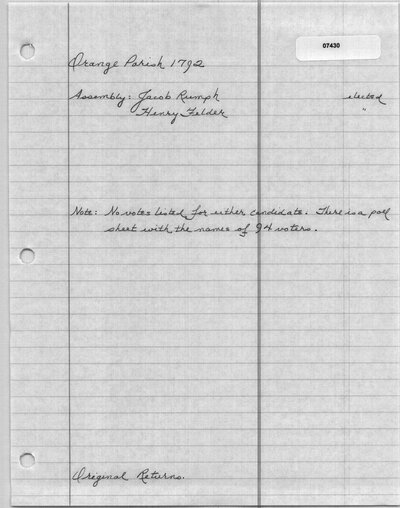 07430
Orange Parish 1792
Assembly: Jacob Rumph elected
Henry Felder "
Note: No votes listed for either candidate. There is a poll
sheet with the names of 94 voters.
Original Returns.